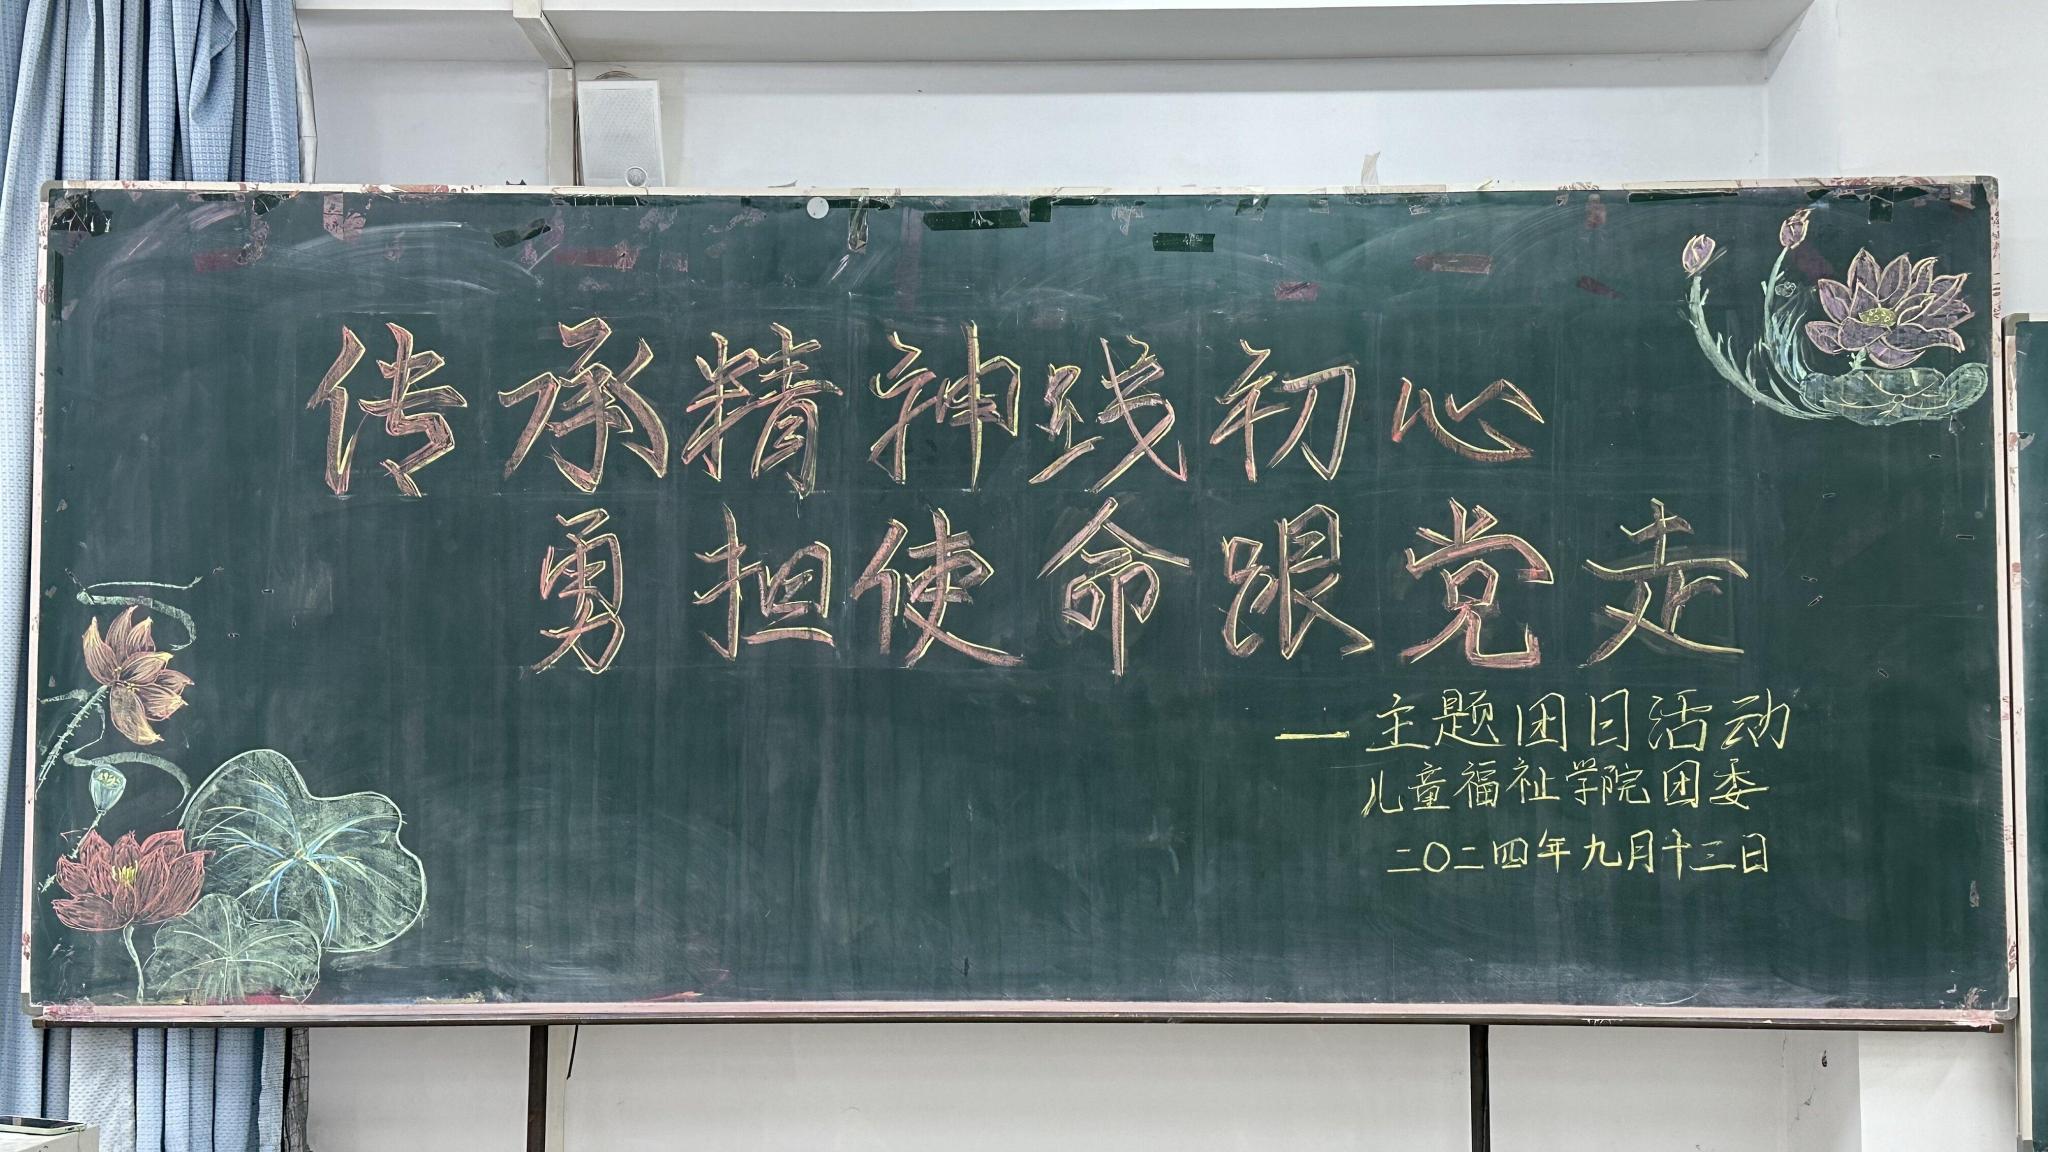 传承精神践初心
勇担使命跟党走
—主题团日活动
儿童福祉学院团委
二〇二四年九月十三日